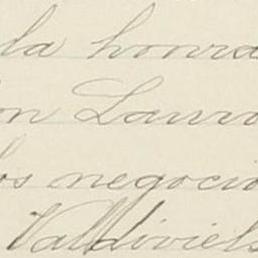 la honra
on Lauro
los negocio
Valdiviels